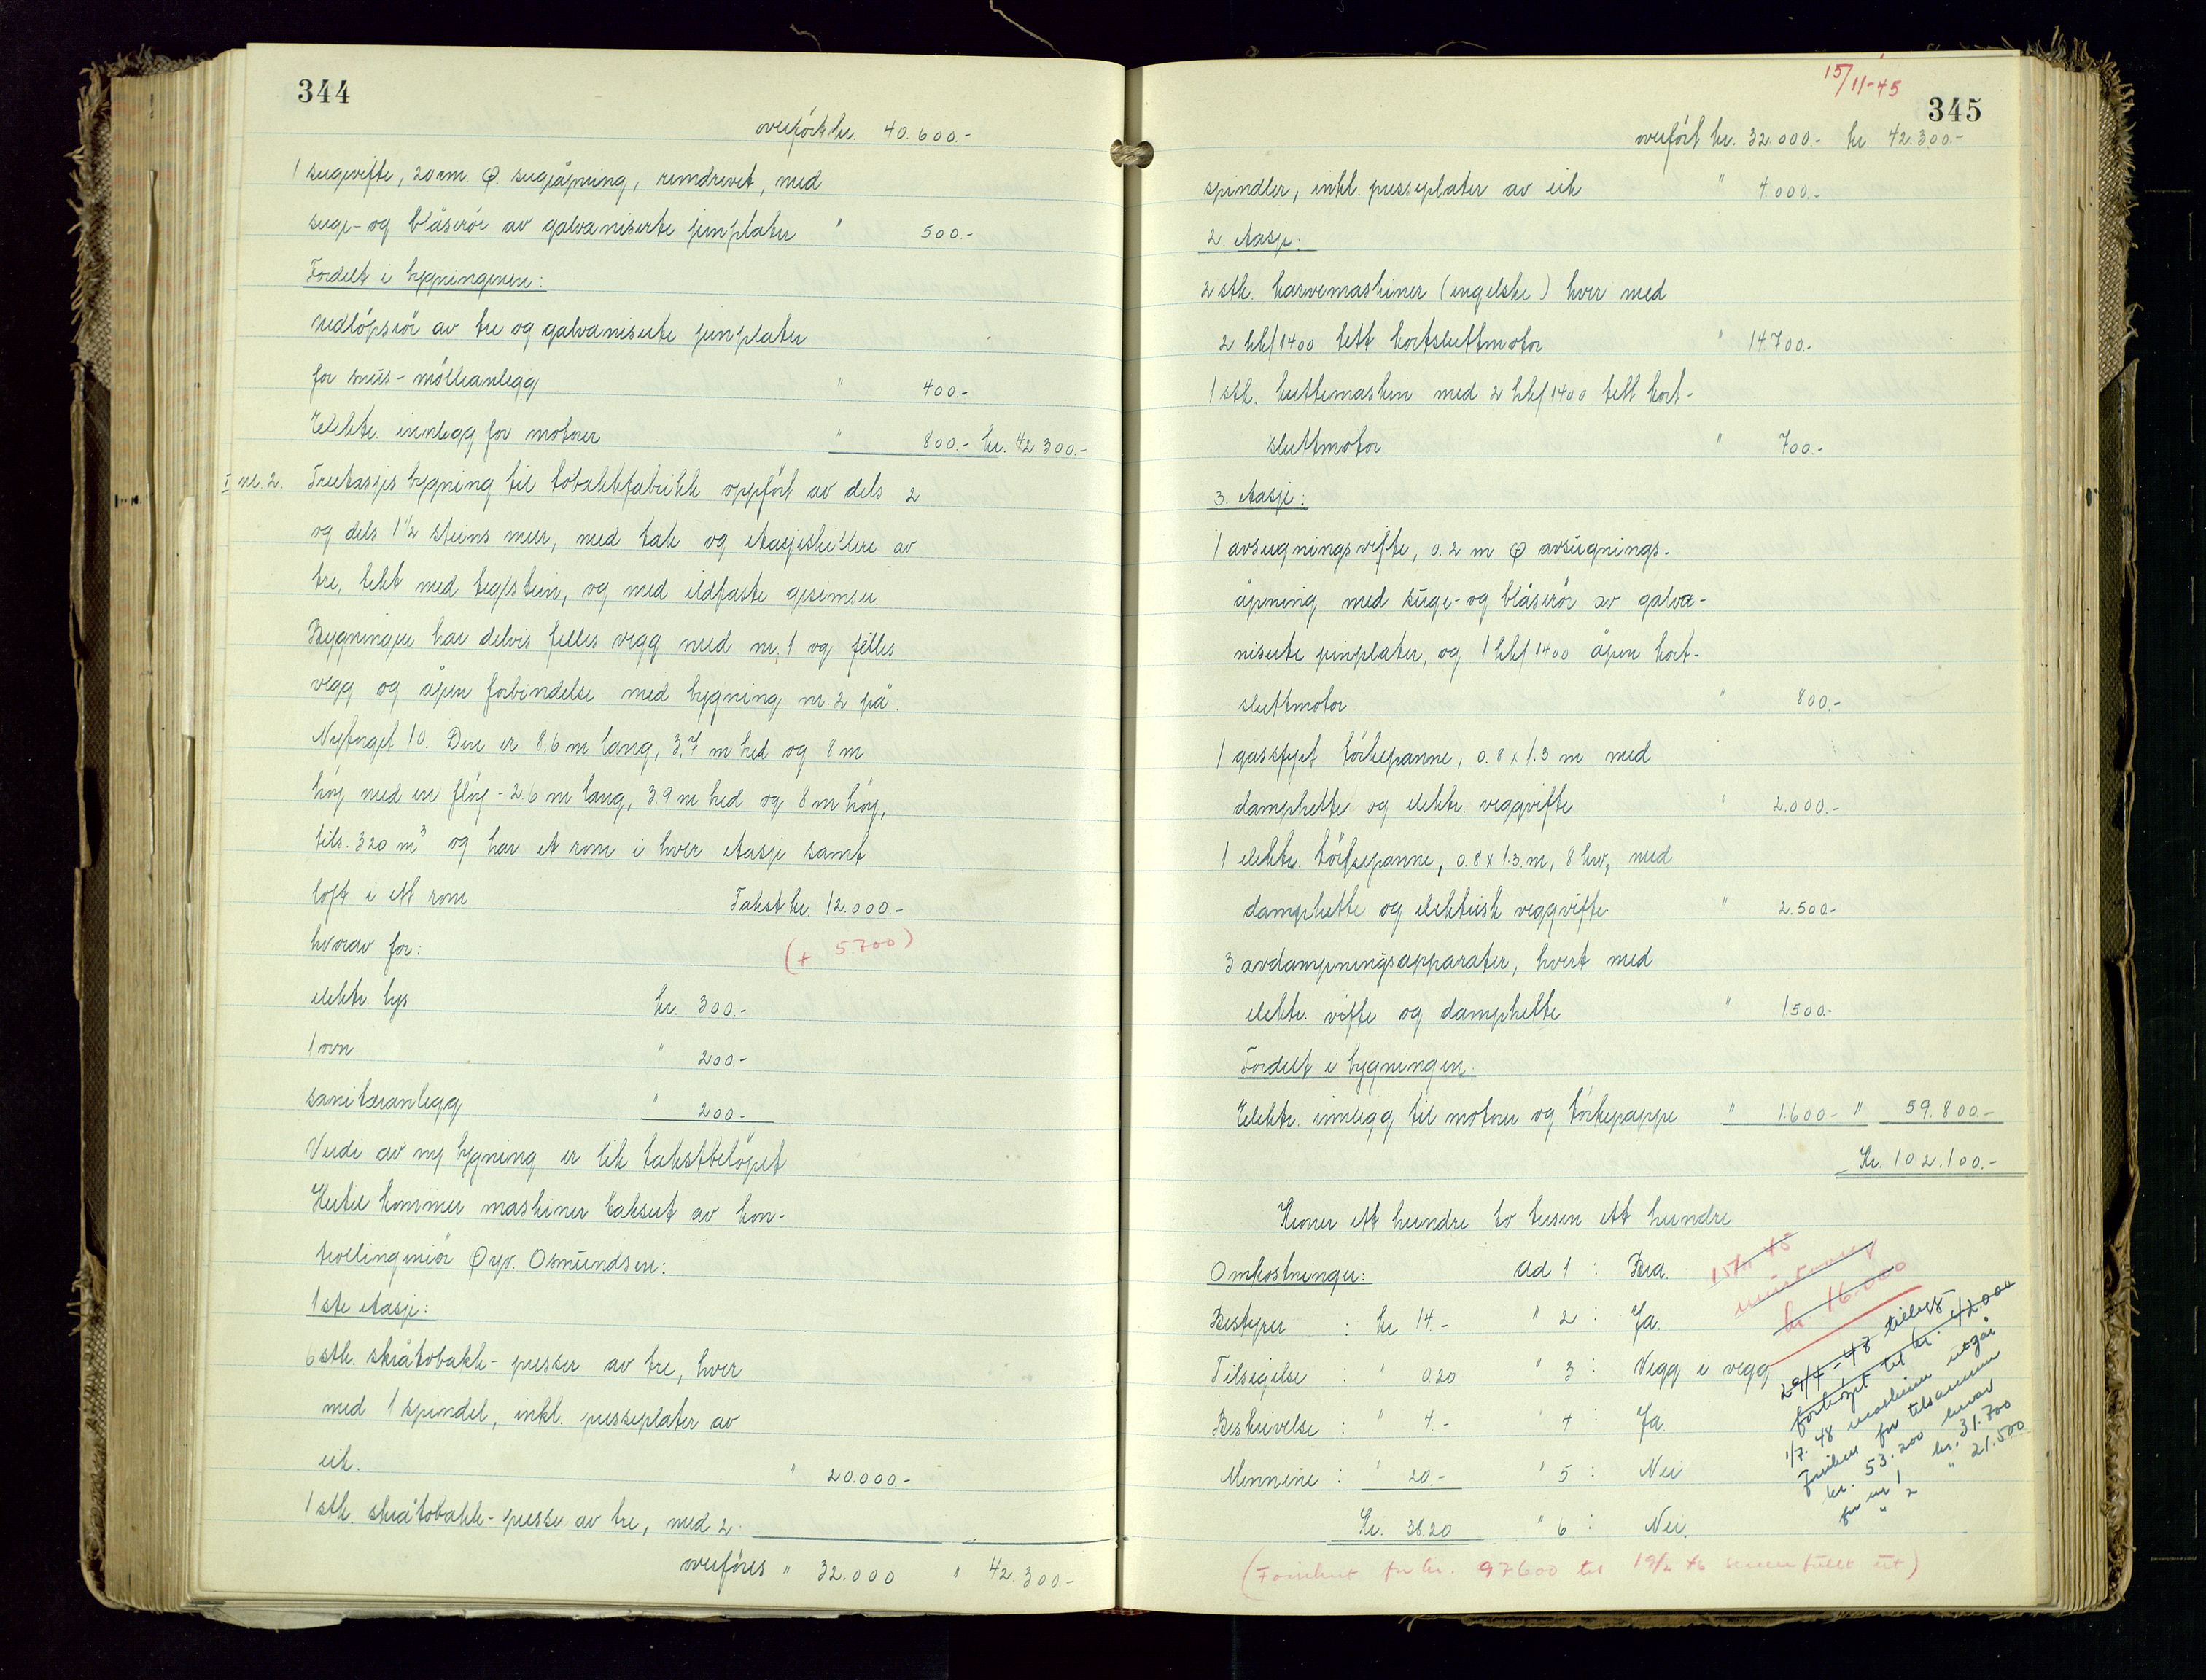 344
overført kr. 40.600.-
1 sugevifte, 20 cm. Ø. sugeåpning, remdrevet, med
suge- og blåserör av galvaniserte jernplater " 500.-
Fordelt i bygningene:
nedlöpsrör av tre og galvaniserte jernplater
for snus-mölleanlegg " 400.-
Elektr. innlegg for motorer " 800.- kr. 42.300.-
I nr. 2. Treetasjes bygning til tobakkfabrikk oppfört av dels 2
og dels 1 1/2 steins mur, med tak og etageskillere av
tre, tekt med teglstein, og med ildfaste gesimser.
Bygningen har delvis felles vegg med nr. 1 og felles
vegg og åpen forbindelse med bygning nr. 2 på
Nytorget 10. Den er 8.6 m lang, 3.7 m bred og 8 m
höy med en flöy - 2.6 m lang, 3.9 m bred og 8 m höy,
tils. 320 m³ og har et rom i hver etasje samt
loft i ett rom Takst kr. 12.000.-
hvorav for: (+ 5.700)
elektr. lys kr. 300.-
1 ovn " 200.-
sanitæranlegg " 200.-
Verdi av ny bygning er lik takstbelöpet
Hertil kommer maskiner taksert av kon-
trollingeniör Øyv. Osmundsen:
1ste etasje:
6 stk. skråtobakk-presser av tre, hver
med 1 spindel, inkl. presseplater av
eik. " 20.000.-
1 stk. skråtobakk-presse av tre, med 2
overföres " 32.000 " 42.300.-
15/11-45
345
overfört kr. 32.000.- kr. 42.300.-
spindler, inkl. presseplater av eik " 4.000.-
2. etasje:
2 stk. karvemaskiner (engelske) hver med
2 hk/1400 tett kortsluttmotor " 14.700.-
1 stk. kuttemaskin med 2 hk/1400 tett kort-
sluttmotor " 700.-
3. etasje:
1 avsugningsvifte, 0.2 m Ø avsugnings-
åpning med suge- og blåserör av galva-
niserte jernplater, og 1 hk/1400 åpen kort-
sluttmotor " 800.-
1 gassfyrt törkepanne, 0.8 x 1.3 m med
damphette og elektr. veggvifte " 2.000.-
1 elektr. törkepanne, 0.8 x 1.3 m, 8 kw, med
damphette og elektrisk veggvifte " 2.500.-
3 avdampningsapparater, hvert med
elektr. vifte og damphette " 1.500.-
Fordelt i bygningen.
Elektr. innlegg til motorer og törkepappe " 1.600.- " 59.800.-
Kr. 102.100.-
Kroner ett hundre to tusen ett hundre
Omkostninger: Ad 1 : Bra.
Bestyrer : kr 14.- " 2 : Ja.
Tilsigelse : " 0.20 " 3 : Vegg i vegg
Beskrivelse : " 4.- " 4 : Ja
Mennene : " 20.- " 5 : Nei
Kr. 38.20 " 6 : Nei.
15/11 45
kr. 16.000
29/4-48 tillegg
forhöyet til kr. 42.000
1/7. 48 maskiner utgår
for tilsammen
kr. 53.200 hvorav
for nr 1 kr. 31.700
" 2 " 21.500
(Forsikret for kr. 97600 til 19/2 46 fullt ut)